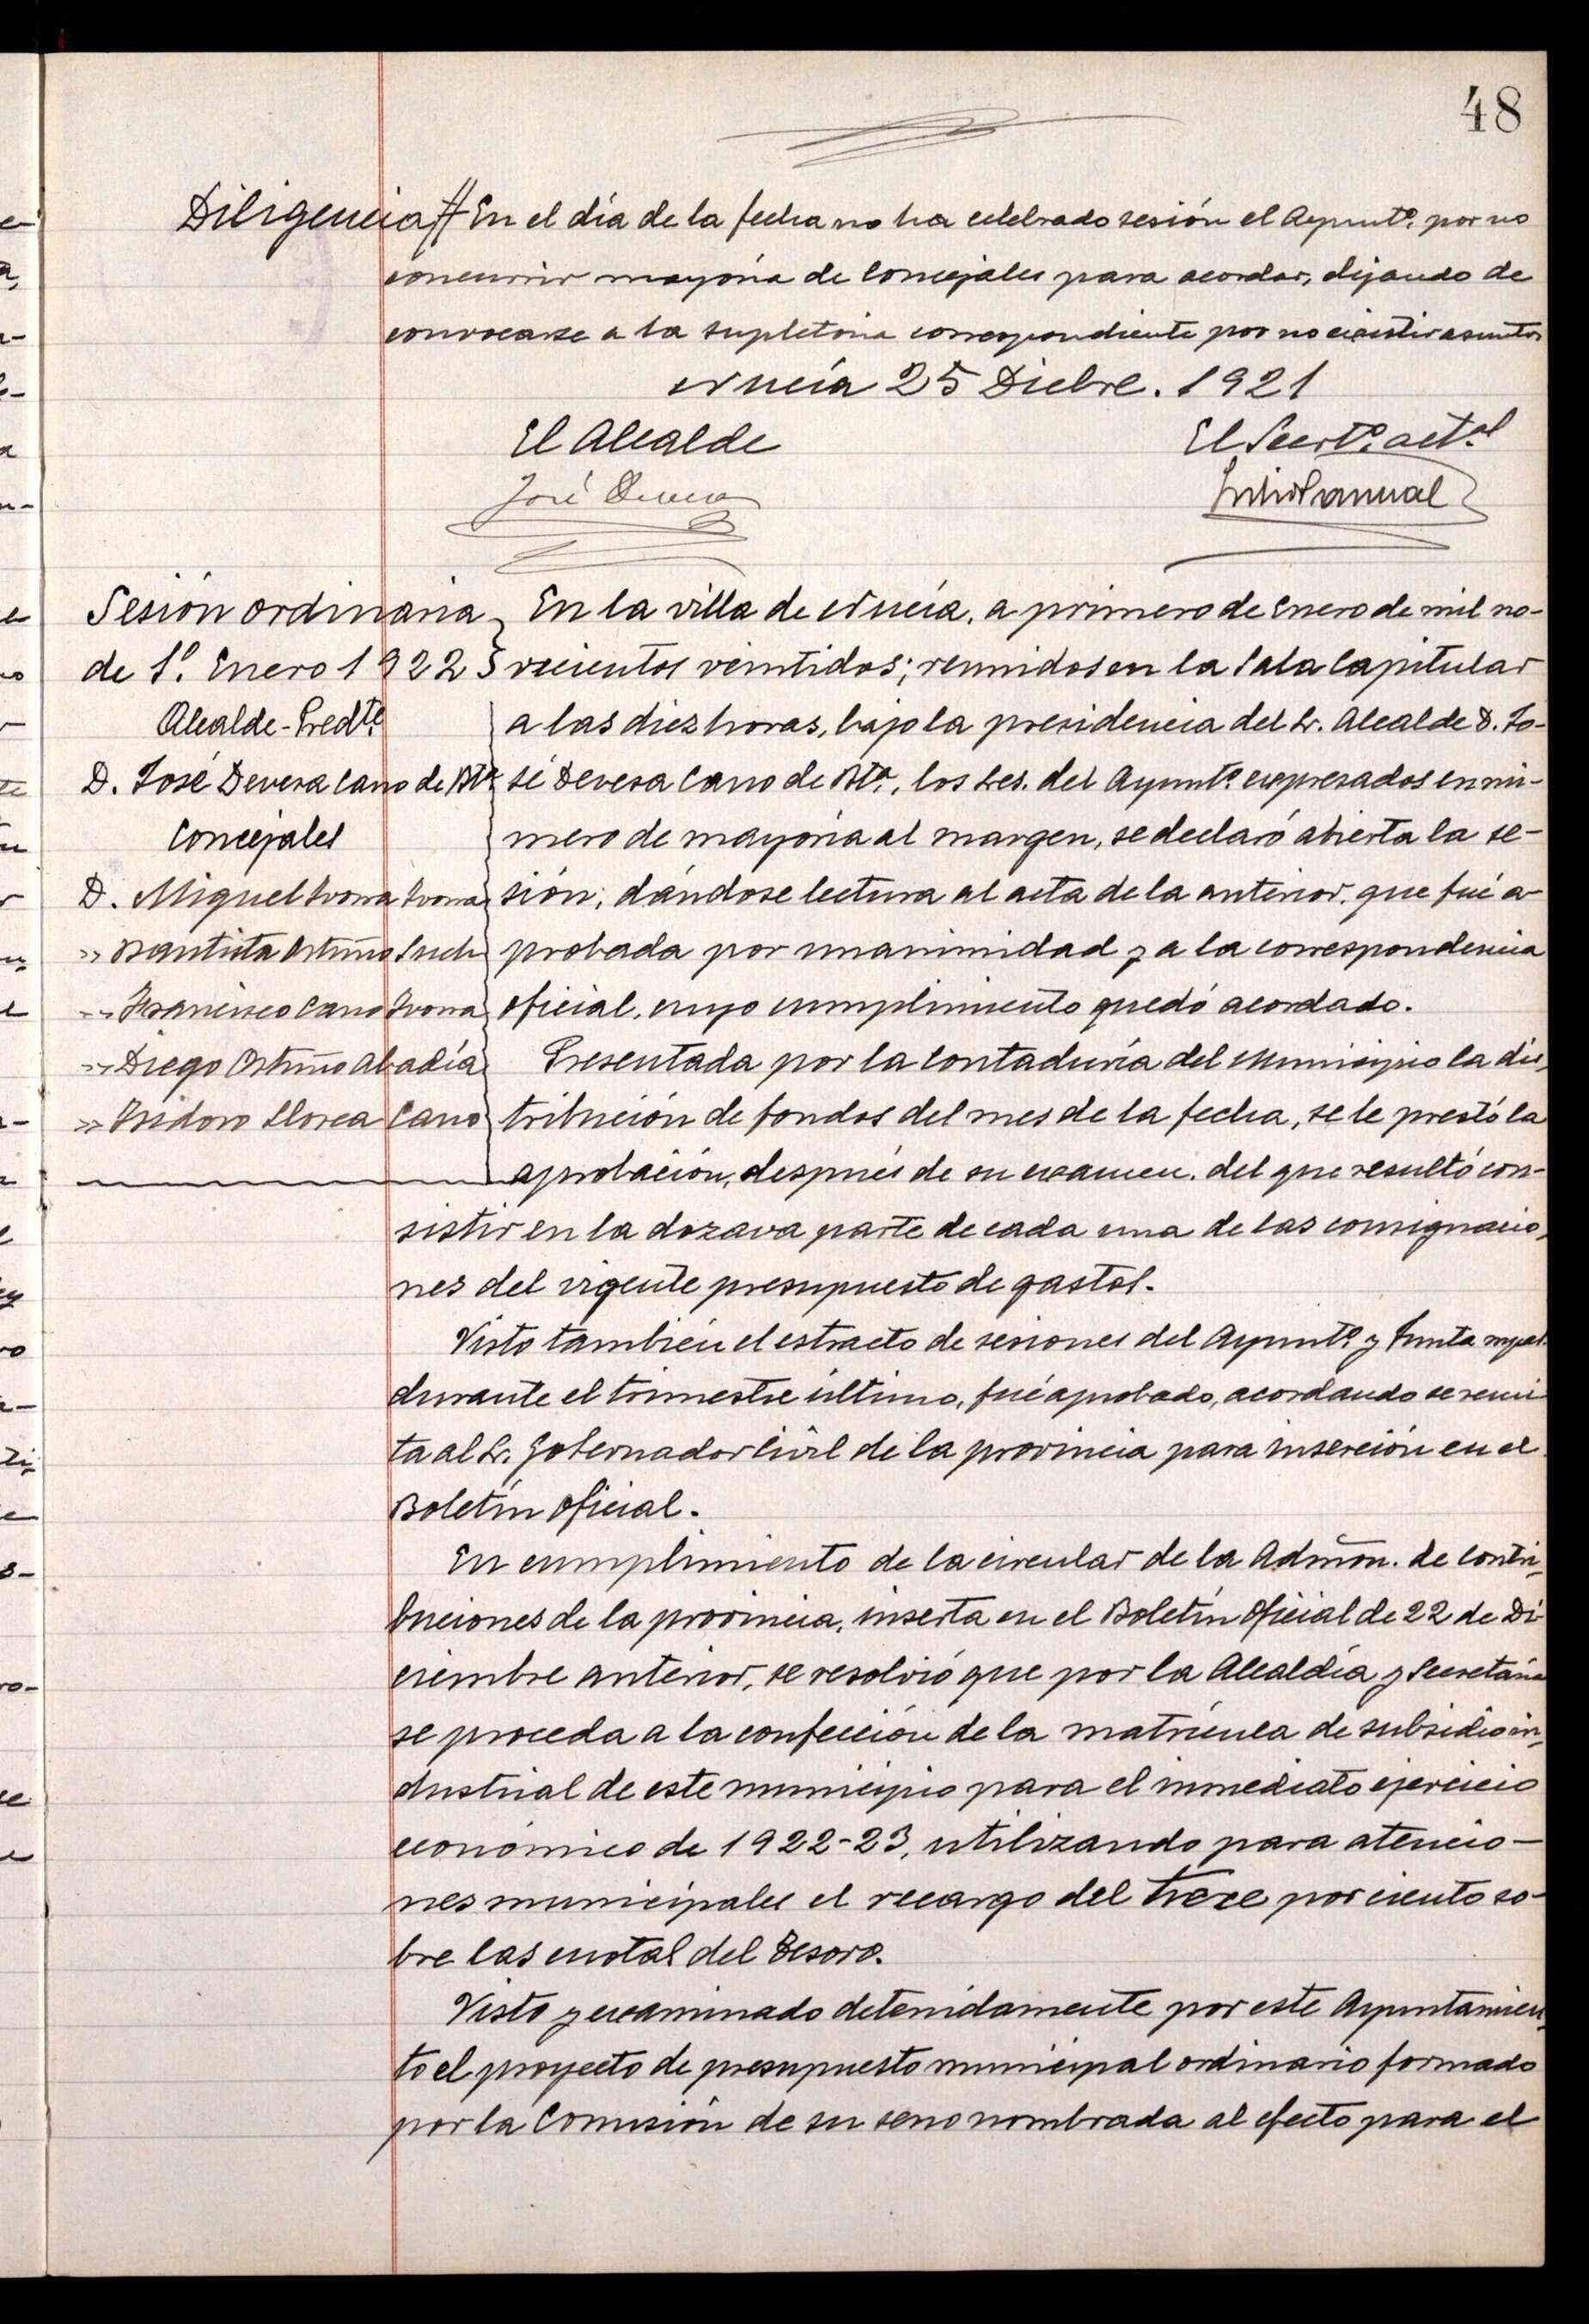 48
Diligencia // En el día de la fecha no ha celebrado sesión el Ayuntº. por no
concurrir mayoría de Concejales para acordar, dejando de
convocarse a la supletoria correspondiente por no existir asuntos
Nucía 25 Dicbre. 1921
El Alcalde
El Secrtº. actal
José Devesa
Sesión ordinaria
de 1º. Enero 1922
Alcalde-Predte.
D. José Devesa Cano de Bta.
Concejales
D. Miguel Ivorra Ivorra
» Bautista Ortuño Such
» Francisco Cano Ivorra
» Diego Ortuño Abadía
» Isidoro Llorca Cano
En la villa de Nucía, a primero de Enero de mil no-
vecientos veintidos; reunidos en la Sala Capitular
a las diez horas, bajo la presidencia del Sr. Alcalde D. Jo-
sé Devesa Cano de Bta., los Sres. del Ayuntº. expresados en nú-
mero de mayoría al margen, se declaró abierta la se-
sión; dándose lectura al acta de la anterior, que fué a-
probada por unanimidad y a la correspondencia
oficial, cuyo cumplimiento quedó acordado.
Presentada por la Contaduría del Municipio la dis-
tribución de fondos del mes de la fecha, se le prestó la
aprobación, después de su examen, del que resultó con-
sistir en la dozava parte de cada una de las consignacio-
nes del vigente presupuesto de gastos.
Visto también el estracto de sesiones del Ayuntº. y Junta mpal.
durante el trimestre último, fué aprobado, acordando se remi-
ta al Sr. Gobernador Civil de la provincia para inserción en el
Boletín Oficial.
En cumplimiento de la circular de la Admón. de Contri-
buciones de la provincia, inserta en el Boletín Oficial de 22 de Di-
ciembre anterior, se resolvió que por la Alcaldía y Secretaría
se proceda a la confección de la matrícula de subsidio in-
dustrial de este municipio para el inmediato ejercicio
económico de 1922-23, utilizando para atencio-
nes municipales el recargo del trece por ciento so-
bre las cuotas del Tesoro.
Visto y examinado detenidamente por este Ayuntamien-
to el proyecto de presupuesto municipal ordinario formado
por la Comisión de su seno nombrada al efecto para el